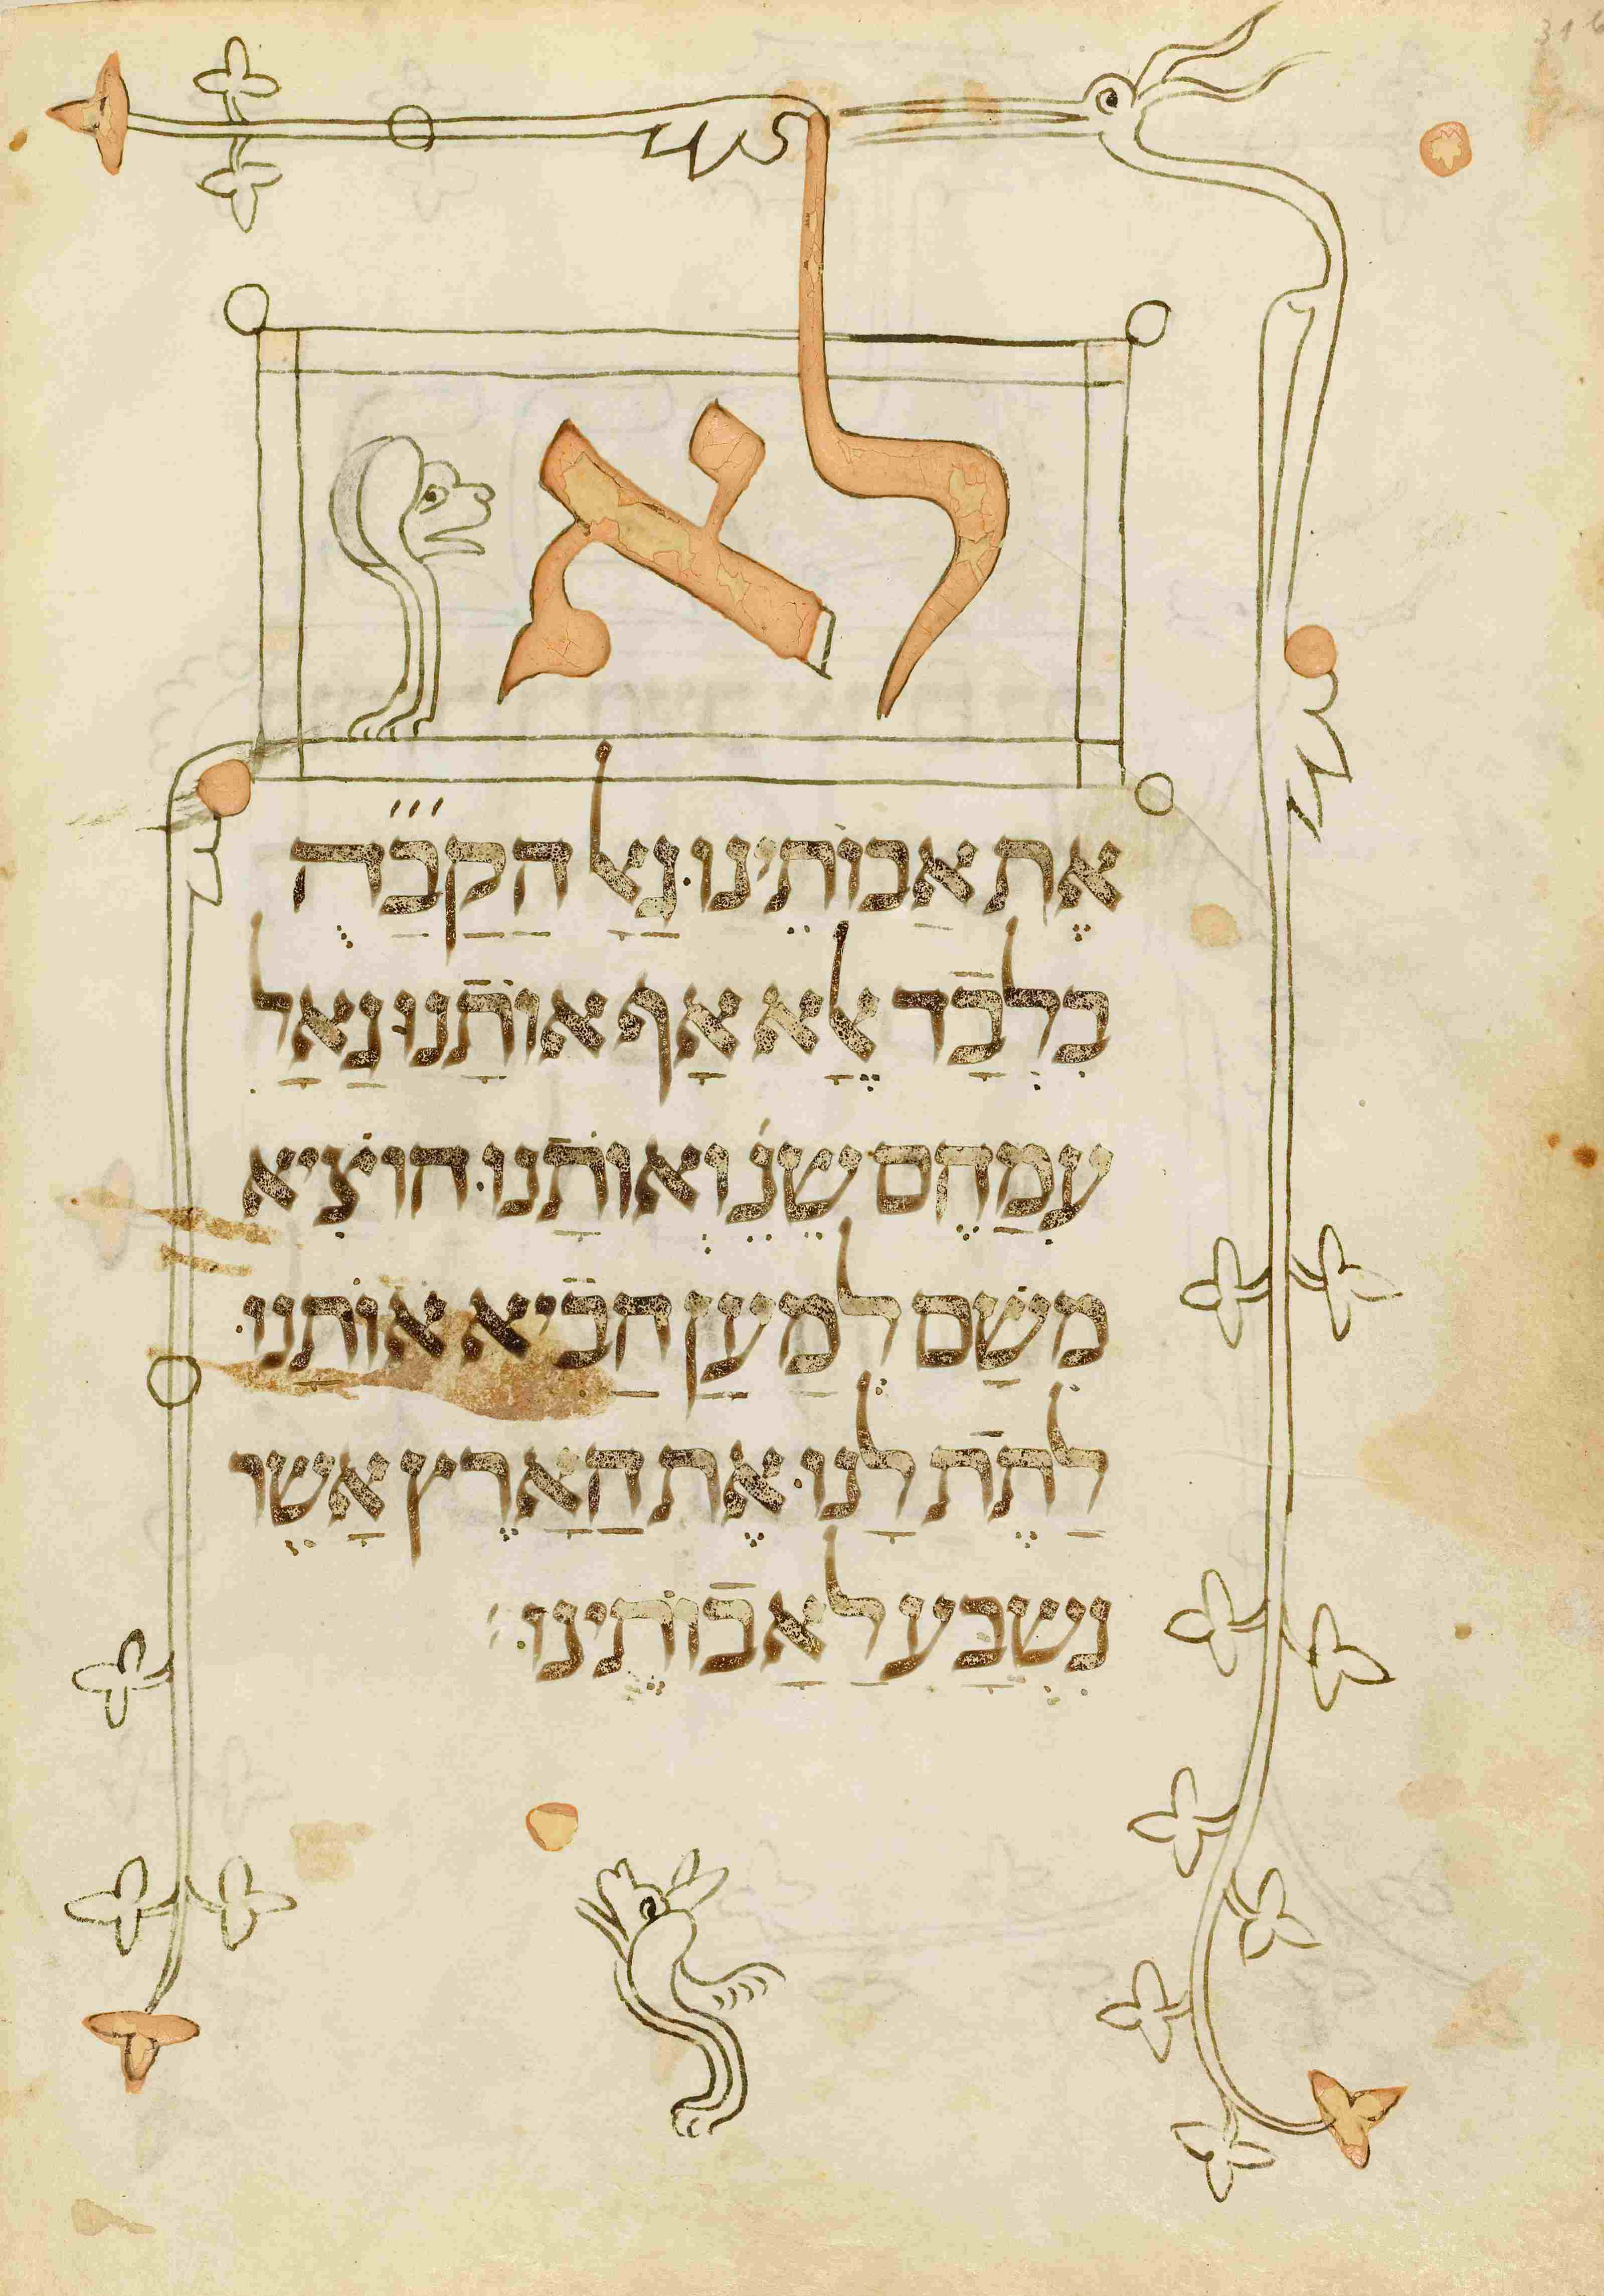 31
לא
את אבותינו. גאל הקבה
בלבד אלא אף אותנו גאל
עמהם שנ' ואותנו. הוציא
משם למען הביא אותנו.
לתת לנו. את הארץ אשר
נשבע לאבותינו: